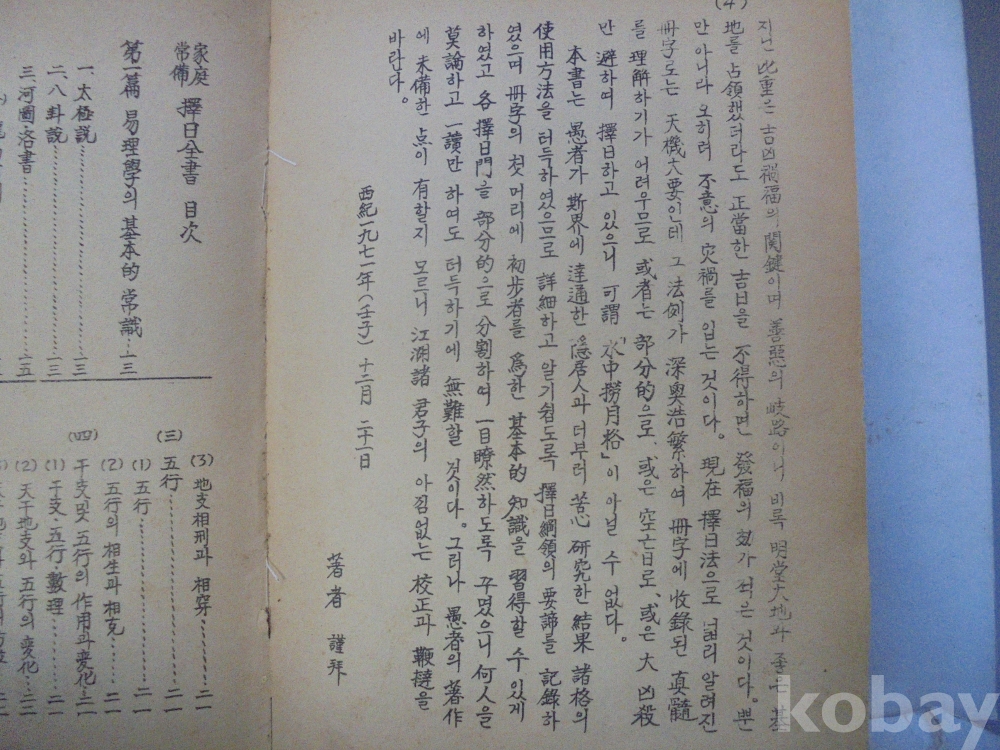 (4)
지닌 比重은 吉凶禍福의 関鍵이며 善惡의 岐路이니 비록 明堂大地과 좋은 基
地를 占領했더라도 正當한 吉日을 不得하면 發福의 효가 석은 것이다。뿐
만 아니라 오히려 不意의 灾禍를 입는 것이다。現在 擇日法으로 넓리 알려진
冊字도는 天機大要인데 그 法例가 深奧浩繁하여 冊字에 收錄된 真髓
를 理解하기가 어려우므로 或者는 部分的으로、或은 空亡日로、或은 大 凶殺
만 避하여 擇日하고 있으니 可謂「水中撈月格」이 아닐 수 없다。
本書는 愚者가 斯界에 達通한 隱居人과 더부러 苦心 研究한 結果 諸格의
使用方法을 터득하였으므로 詳細하고 알기쉽도록 擇日綱領의 要諦를 記錄하
였으며 冊字의 첫머리에 初步者를 爲한 基本的 知識을 習得할 수 있게
하였고 各 擇日門을 部分的으로 分割하여 一目瞭然하도록 꾸몄으니 何人을
莫論하고 一讀만 하여도 터득하기에 無難할 것이다。그러나 愚者의 著作
에 未備한 点이 有할지 모르니 江湖諸 君子의 아낌없는 校正과 鞭撻을
바란다。
西紀一九七一年(壬子) 十二月 二十一日
著者 謹拜
家庭常備 擇日全書 目次
第一篇 易理學의 基本的 常識……一三
一、太極説……一三
二、八卦説……一三
三、河圖洛書……一五
(3) 地支相刑과 相穿……二一
(三) 五行……二一
(1) 五行……二一
(2) 五行의 相生과 相克……二一
(四) 干支및 五行의 作用과 変化…二一
(1) 干支・五行 數理……二一
(2) 天干地支와 五行의 変化…二三
kobay